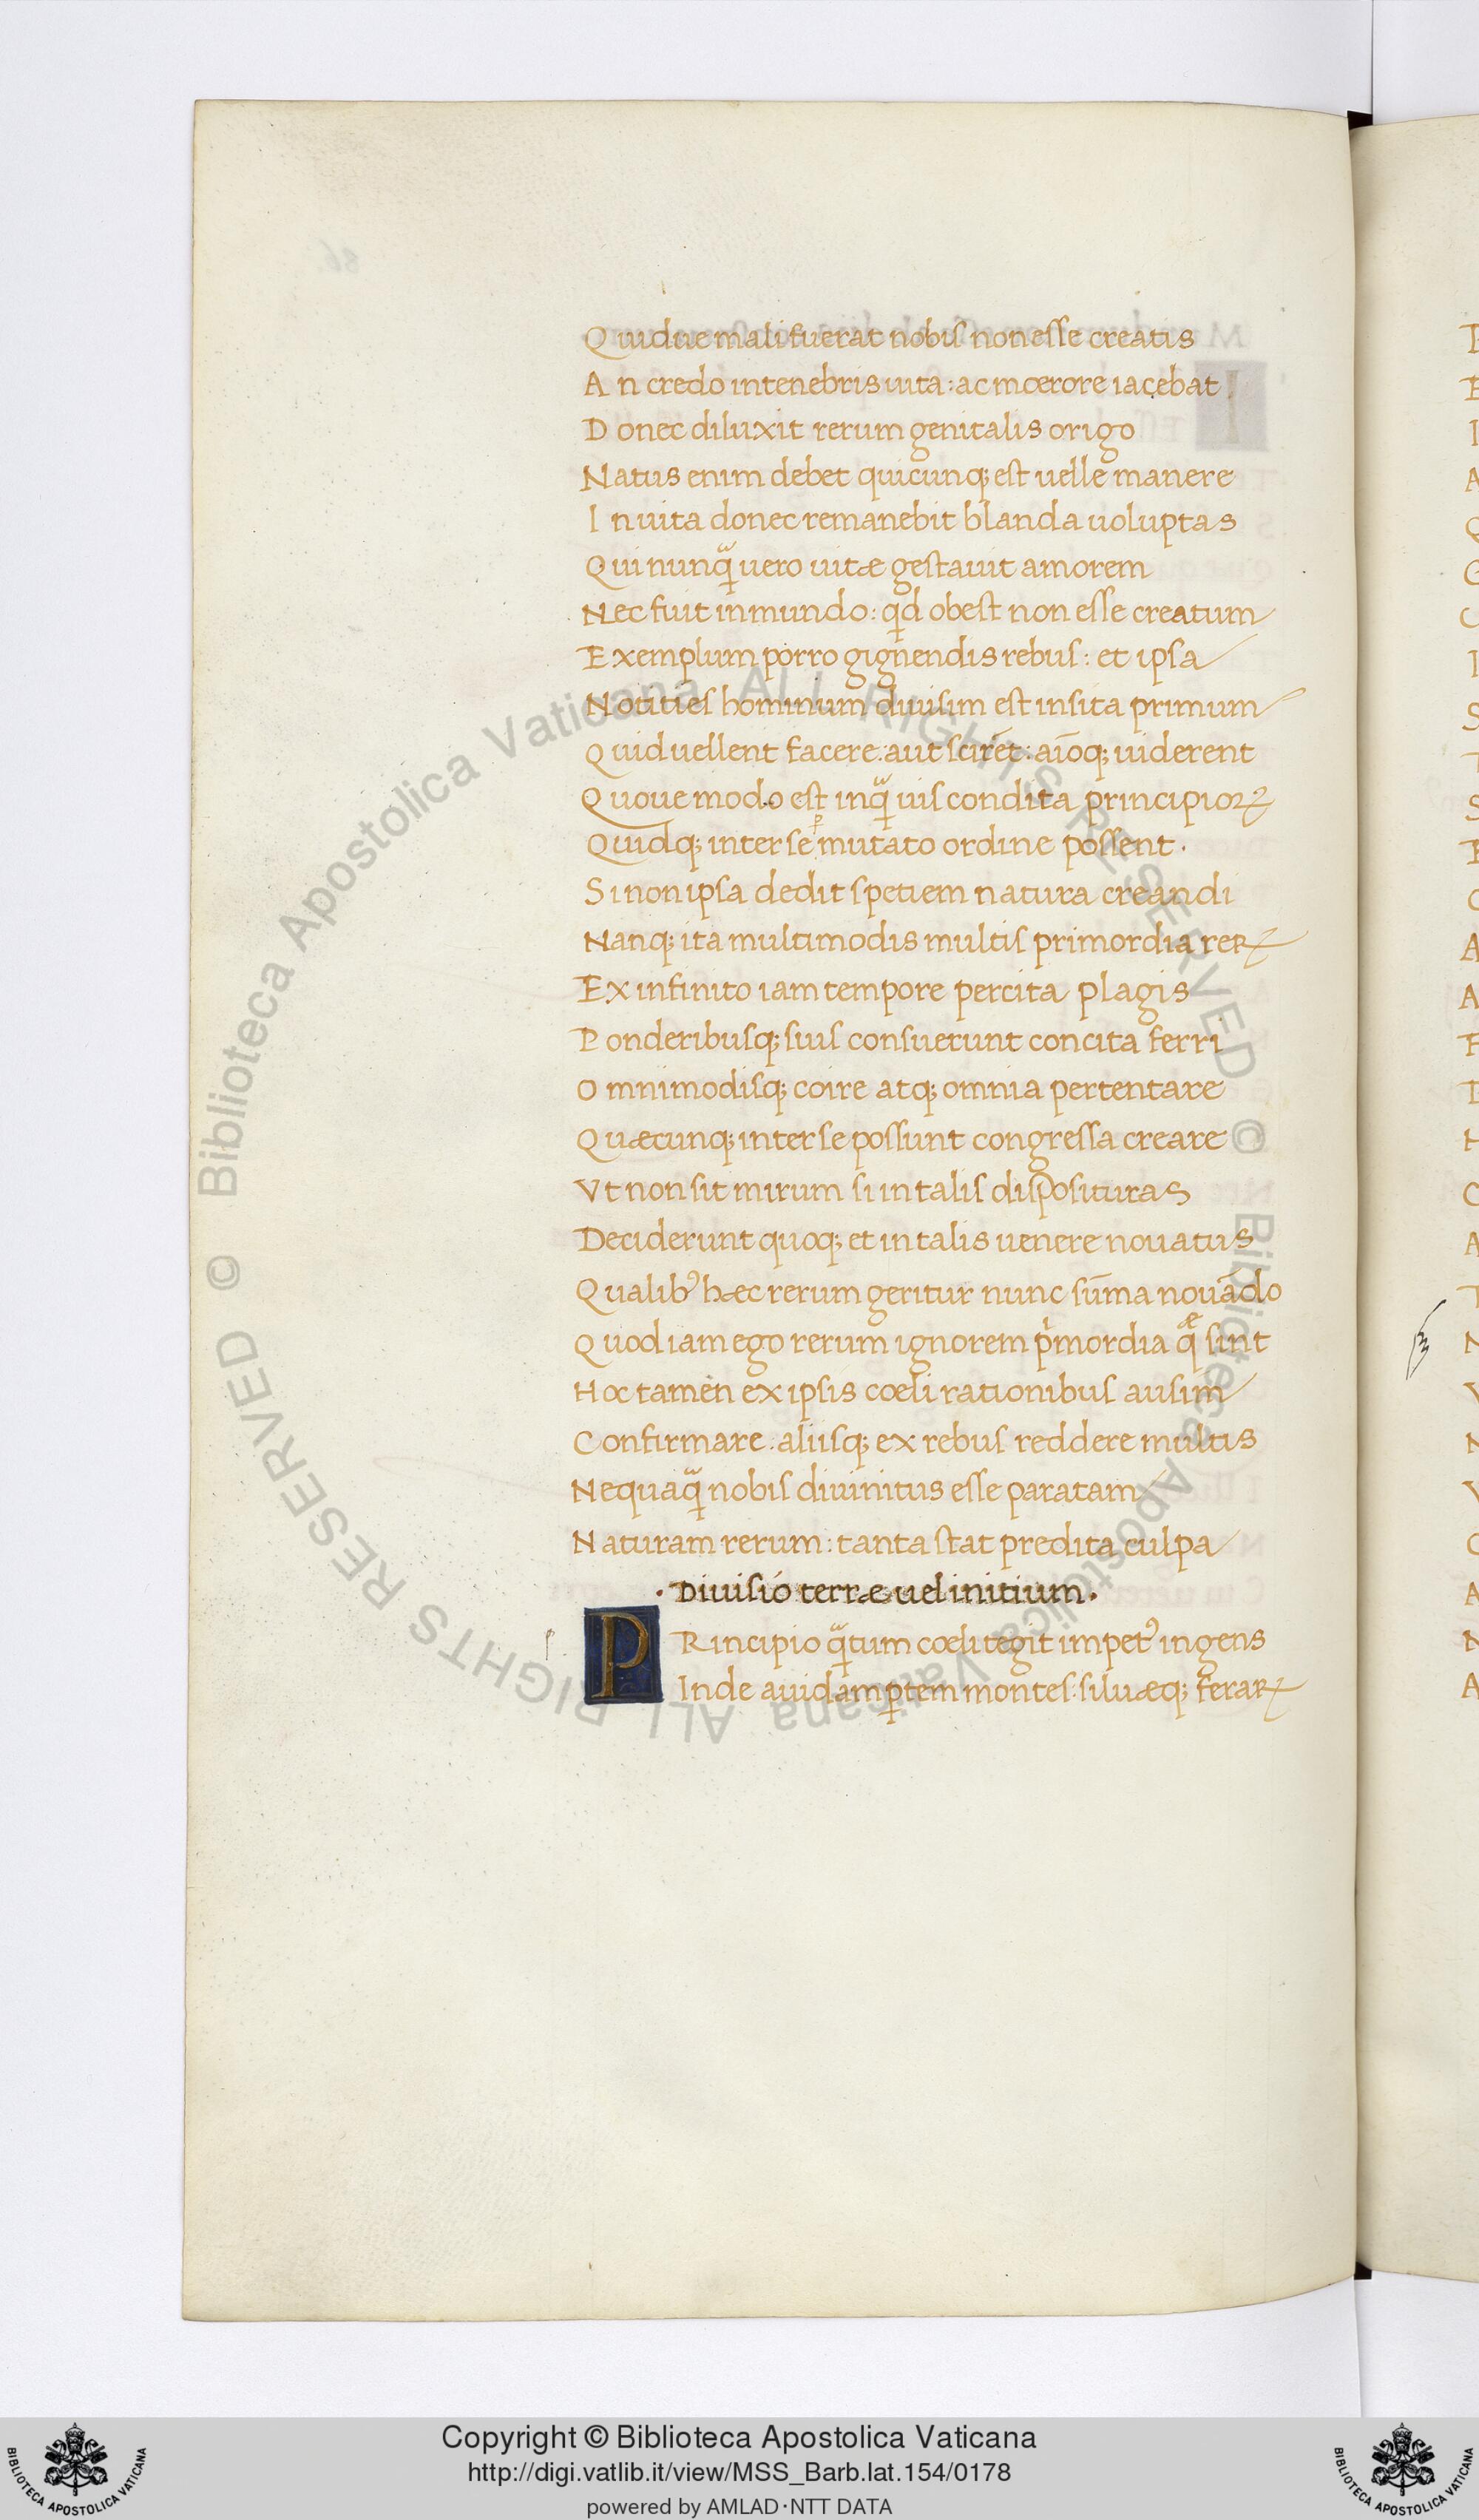 Quidue mali fuerat nobis non esse creatis
An credo in tenebris uita: ac mœrore iacebat
Donec diluxit rerum genitalis origo
Natus enim debet quicunq; est uelle manere
In uita donec remanebit blanda uoluptas
Qui nunq̃ uero uitæ gestauit amorem
Nec fuit in mundo: qd obest non esse creatum
Exemplum porro gignendis rebus: et ipsa
Notities hominum diuisim est insita primum
Quid uellent facere: aut scirēt: aīoq; uiderent
Quoue modo est inq̃ uis condita principioꝝ
Quidq; inter se ꝑmutato ordine possent.
Si non ipsa dedit spetiem natura creandi
Nanq; ita multimodis multis primordia rerꝝ
Ex infinito iam tempore percita plagis
Ponderibusq; suis consuerunt concita ferri
Omnimodisq; coire atq; omnia pertentare
Quæcunq; inter se possunt congressa creare
Vt non sit mirum si in talis disposituras
Deciderunt quoq; et in talis uenere nouatus
Qualibꝰ hæc rerum geritur nunc sūma nouādo
Quod iam ego rerum ignorem pͥmordia qᷓ sint
Hoc tamen ex ipsis cœli rationibus ausim
Confirmare: aliisq; ex rebus reddere multis
Nequaq̃ nobis diuinitus esse paratam
Naturam rerum: tanta stat predita culpa
.Diuisio terræ uel initium.
PRincipio q̃tum cœli tegit impetꝰ ingens
Inde auidam ꝑtem montes: siluæq; ferarꝝ
Copyright © Biblioteca Apostolica Vaticana
http://digi.vatlib.it/view/MSS_Barb.lat.154/0178
powered by AMLAD·NTT DATA
BIBLIOTECA APOSTOLICA VATICANA
BIBLIOTECA APOSTOLICA VATICANA
© Biblioteca Apostolica Vaticana ALL RIGHTS RESERVED © Biblioteca Apostolica Vaticana ALL RIGHTS RESERVED